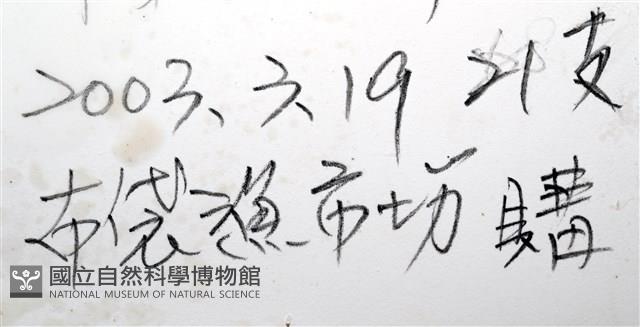 2003、3、19 21支
布袋漁市场 購
國立自然科學博物館
NATIONAL MUSEUM OF NATURAL SCIENCE